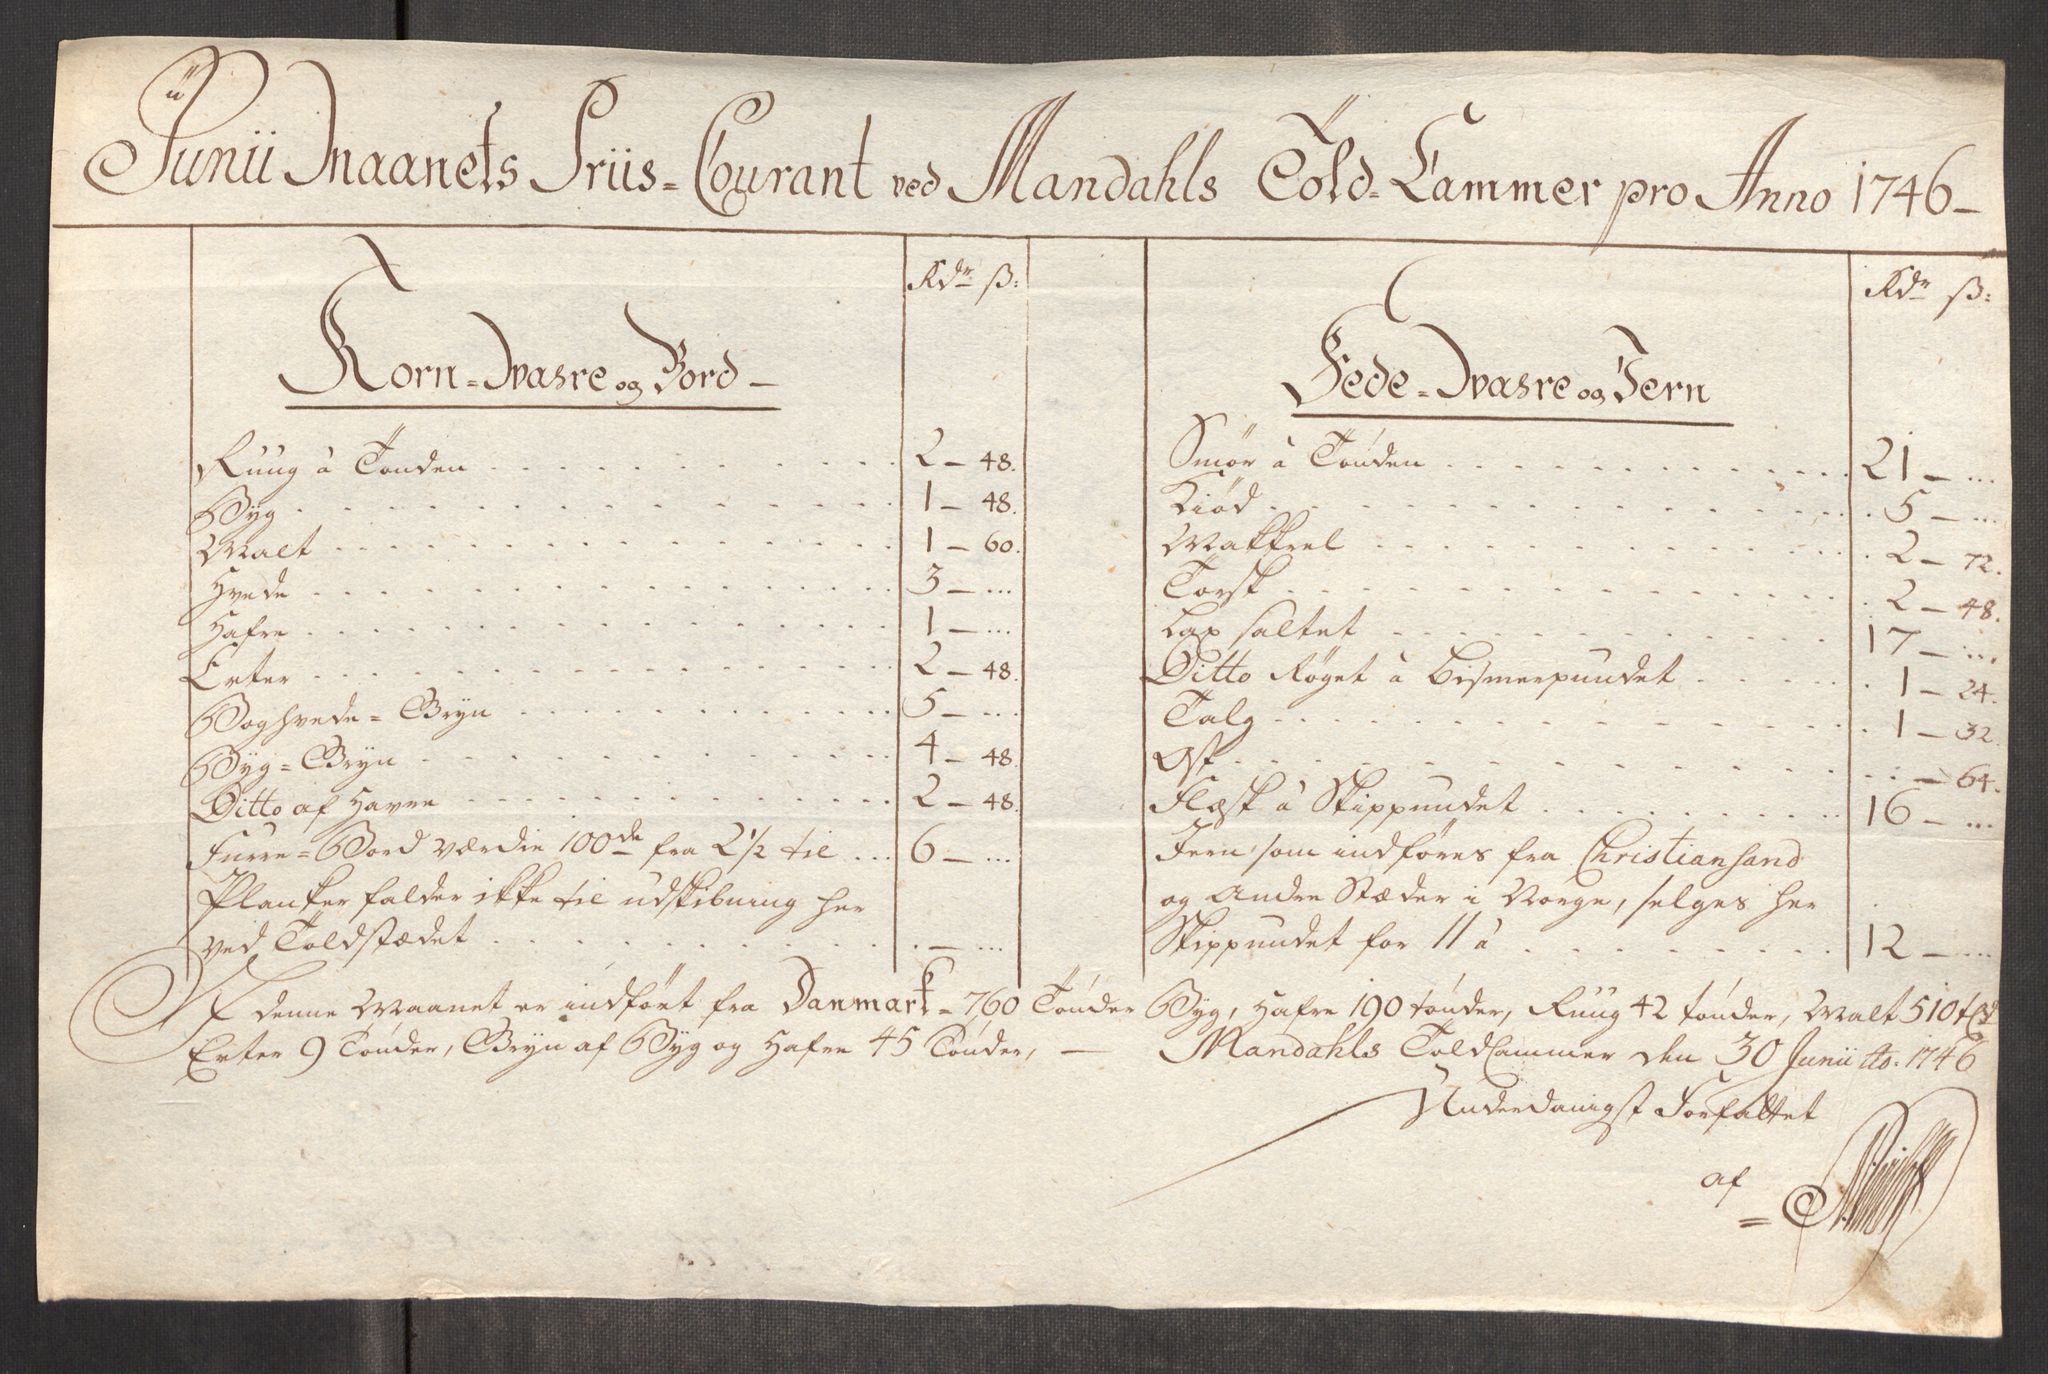 Junii Maanets Priis=Courant ved Mandahls Told=Cammer pro Anno 1746 —
Rdr ß:
Korn=Vahre og Bord —
Ruug à Tönden 2 — 48.
Byg 1 — 48.
Malt 1 — 60.
Hvede 3 — ...
Hafre 1 — ...
Erter 2 — 48.
Boghvede=Gryn 5 — ...
Byg=Gryn 4 — 48.
Ditto af Havre 2 — 48.
Furre=Bord værdie 100de fra 2 1/2 til ... 6 — ...
Planker falder ikke til udskibning her
ved Toldstædet . — ...
Rdr ß:
Fede=Vahre og Jern
Smör à Tönden 21 — ...
Kiöd 5 — ...
Makkrel 2 — 72.
Torsk 2 — 48.
Lax saltet 17 — ...
Ditto Röget à Bismerpundet 1 — 24.
Talg 1 — 32.
Ost — 64.
Flæsk à Skippundet 16 — ...
Jern som indföres fra Christiansand
og Andre Stæder i Norge, selges her
Skippundet for 11 à 12 — ...
I denne Maanet er indfört fra Danmark = 760 Tönder Byg, Hafre 190 tönder, Ruug 42 tönder, Malt 510
Erter 9 Tönder, Gryn af Byg og Hafre 45 Tönder, — Mandahls ToldCammer den 30 Junii Ao. 1746
Underdanigst Forfattet
af